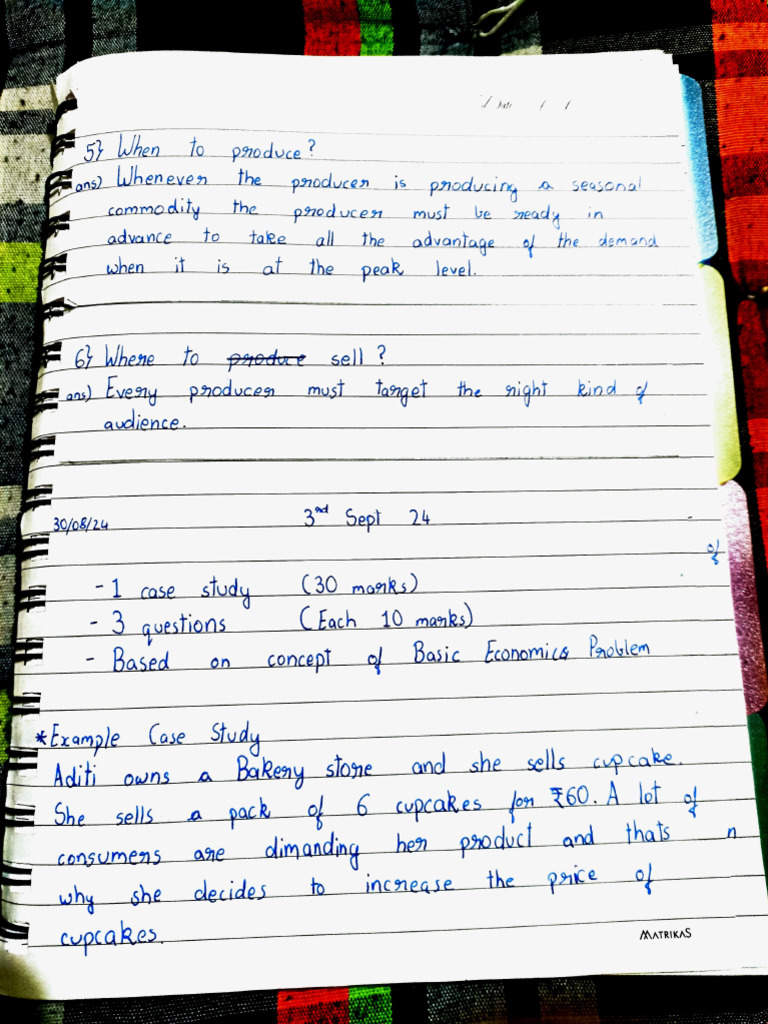 Date / /
5} When to produce?
ans) Whenever the producer is producing a seasonal
commodity the producer must be ready in
advance to take all the advantage of the demand
when it is at the peak level.
6} Where to produce sell?
ans) Every producer must target the right kind of
audience.
30/08/24 3rd Sept 24
of
- 1 case study (30 marks)
- 3 questions (Each 10 marks)
- Based on concept of Basic Economics Problem
*Example Case Study
Aditi owns a Bakery store and she sells cupcake.
She sells a pack of 6 cupcakes for ₹60. A lot of
consumers are dimanding her product and thats n
why she decides to increase the price of
cupcakes.
MATRIKAS